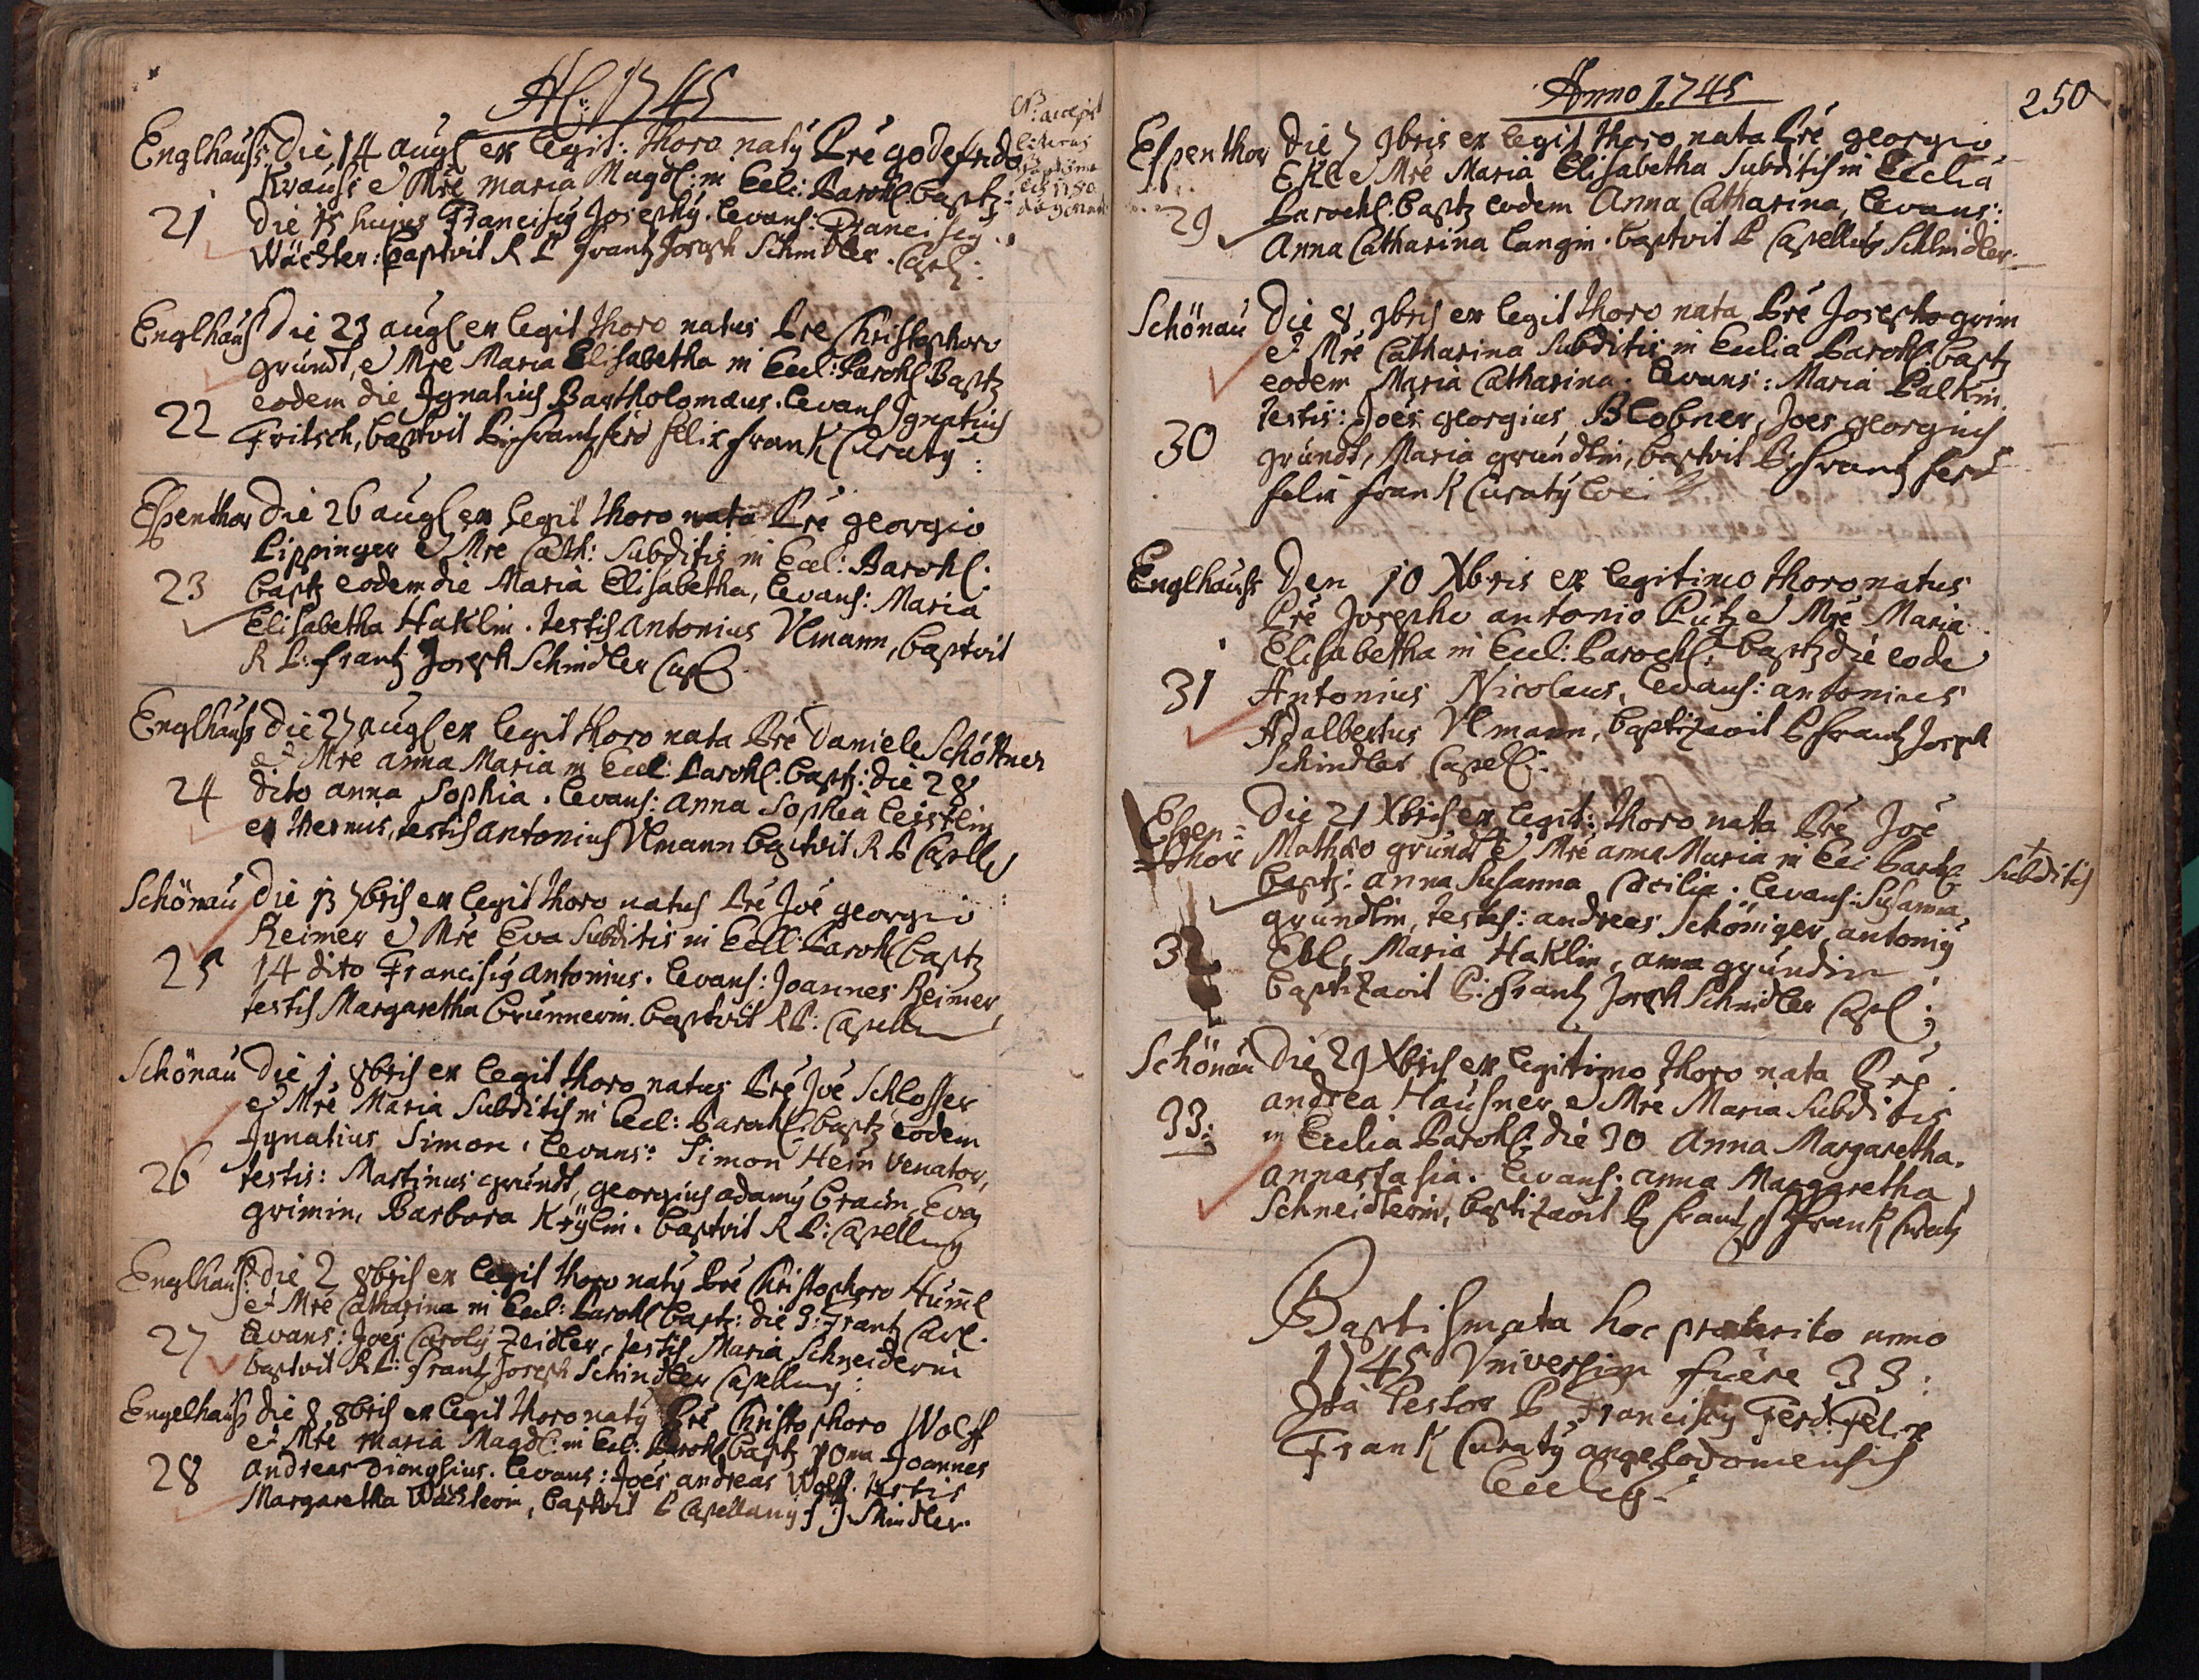 Ao: 1745
Englhauß: Die 14 augl ex legit: thoro naty Pre godefrido
Krauss et Mre maria Magdl: in Eccl: Parochl. baptz:
21 Die 15 hujus Franciscy Josephy. levans: Franciscy
Wächter: baptvit R P Frantz Joseph Schindler. Capl:
Englhauß Die 23 augl ex legit thoro natus Pre Christophoro
gründt, et Mre Maria Elisabetha in Eccl: Parochl. Baptz
eodem die Ignatius Bartholomæus. levans Ignatius
22 Fritsch, baptvit P: Frantz Ferd Felix Frank Curaty:
Espenthor Die 26 augl ex legit thoro nata Pre georgio
Lippinger et Mre Cath: Subditis in Eccl: Parochl:
23 baptz eodem die Maria Elisabetha, levans: Maria
Elisabetha Haklin. testis Antonius Ulmann, baptvit
R P: Frantz Joseph Schindler Capl
Englhauß Die 27 augl ex legit thoro nata Pre Daniele Schöttner
et Mre anna Maria in Eccl: Parochl. baptz: die 28
24 dito anna Sophia. levans: anna Sophia leistlin
ex thermis, testis antonius Ulmann baptvit R P Capells
Schönau Die 13 7bris ex legit thoro natus Pre Joe georgio
Reimer et Mre Eva Subditis in Eccl: Parochl baptz
25 14 dito Franciscy Antonius. levans: Joannes Reimer,
testis Margaretha Brunnerin. baptvit R P: Capelln
Schönau Die 1 8bris ex legit thoro natus Pre Joe Schlosser
et Mre Maria Subditis in Eccl: Parochl: baptz eodem
Ignatius Simon. levans: Simon Hein venator,
26 testis: Martinus gründt, georgius adamy Braun, Eva
grimin, Barbora Krÿlin. baptvit R P: Capellany
Englhauß: Die 2 8bris ex legit thoro naty Pre Christophoro Huml
et Mre Catharina in Eccl: Parochl baptz: die 3: Frantz Carl.
27 levans: Joes Caroly Zeidler, testis Maria Schneiderin
baptvit R P: Frantz Joseph Schindler Capellany:
Engelhauß Die 8 8bris ex legit thoro naty Pre Christophoro Wolff
et Mre maria Magdl: in Eccl: Parochl baptz 10ma Joannes
28 andreas Dionysius. levans: Joes andreas Wolff. testis
Margaretha Wächterin, baptvit P Capellany F J Schindler
Anno 1745
250
Espenthor Die 7 9bris ex legit thoro nata Pre georgio
Ekl et Mre Maria Elisabetha Subditis in Ecclia
29 Parochl. baptz eodem Anna Catharina, levans:
Anna Catharina langin. baptvit P Capellus Schindler.
Schönau Die 8 9bris ex legit thoro nata Pre Josepho grim
et Mre Catharina Subditis in Ecclia Parochl baptz
eodem Maria Catharina. levans: Maria Palkin.
testis: Joes georgius Blobner, Joes georgius
30 gründt, Maria gründtin, baptvit P: Frantz Ferd
Felix Frank Curaty loci
Englhauß Den 10 Xbris ex legitimo thoro natus
Pre Josepho antonio Putz et Mre Maria
Elisabetha in Eccl: Parochl: baptz die eode
31 Antonius Nicolaus, levans: antonius
Adalbertus Ulmann, baptizavit P Frantz Joseph
Schindler Capell:
Espen= Die 21 Xbris ex legit: thoro nata Pre Joe
=thor Mathæo gründt et Mre anna Maria in Ecc: Parochl + Subditis
baptz: anna Susanna Cæcilia. levans: Susanna
gründtin, testes: andreas Schöniger, antoniy
32 Ekl, Maria Haklin, anna gründin
baptizavit P: Frantz Joseph Schindler Capl:
Schönau Die 29 Xbris ex legitimo thoro nata Pre
andrea Hausner et Mre Maria Subditis
33: in Ecclia Parochl: die 30 Anna Margaretha.
annastasia. levans: anna Margaretha
Schneiderin, baptizavit P Frantz F Frank Curatz
Baptismata hoc præterito anno
1745 Universim fuere 33:
Ita testor P Franciscy Ferd: Felix
Frank Curaty angelodomensis
Ecclesiæ